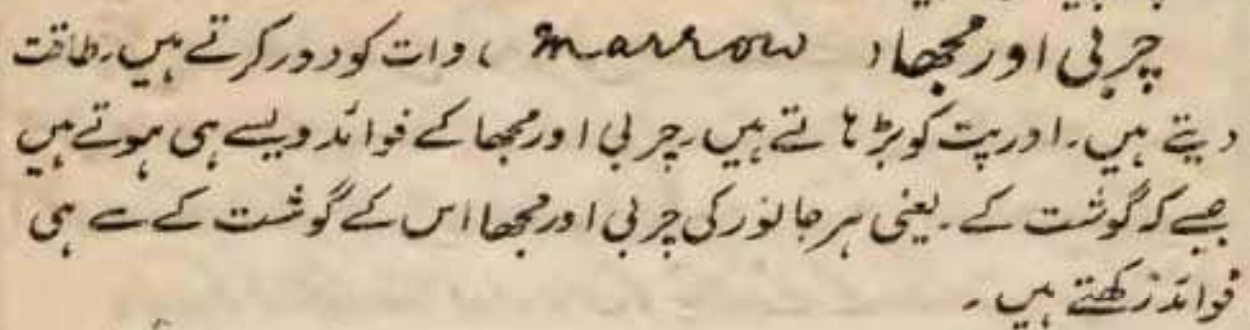 چربی اور مجھا ( marrow ) وات کو دور کرتے ہیں۔ طاقت
دیتے ہیں۔ اور پت کو بڑھاتے ہیں۔ چربی اور مجھا کے فوائد ویسے ہی ہوتے ہیں
جیسے کہ گوشت کے۔ یعنی ہر جانور کی چربی اور مجھا اس کے گوشت کے سے ہی
فوائد رکھتے ہیں۔